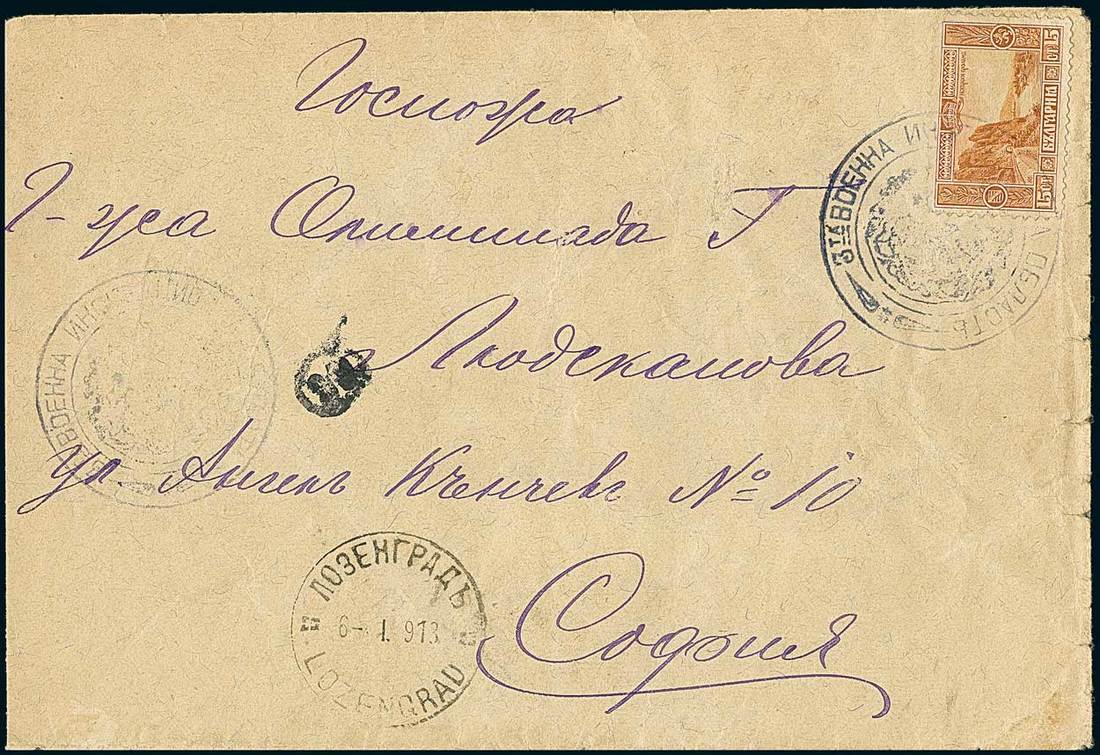 Госпожа
Г-жа Олимпиада Г
Людсканова
ул. Ангел Кънчевъ № 10
София
15 СТ БЪЛГАРИЯ СТ 15
3ТА ВОЕННА ОБЛАСТЬ
ВОЕННА
ЛОЗЕНГРАДЪ
6-.I.913
LOZENGRAD